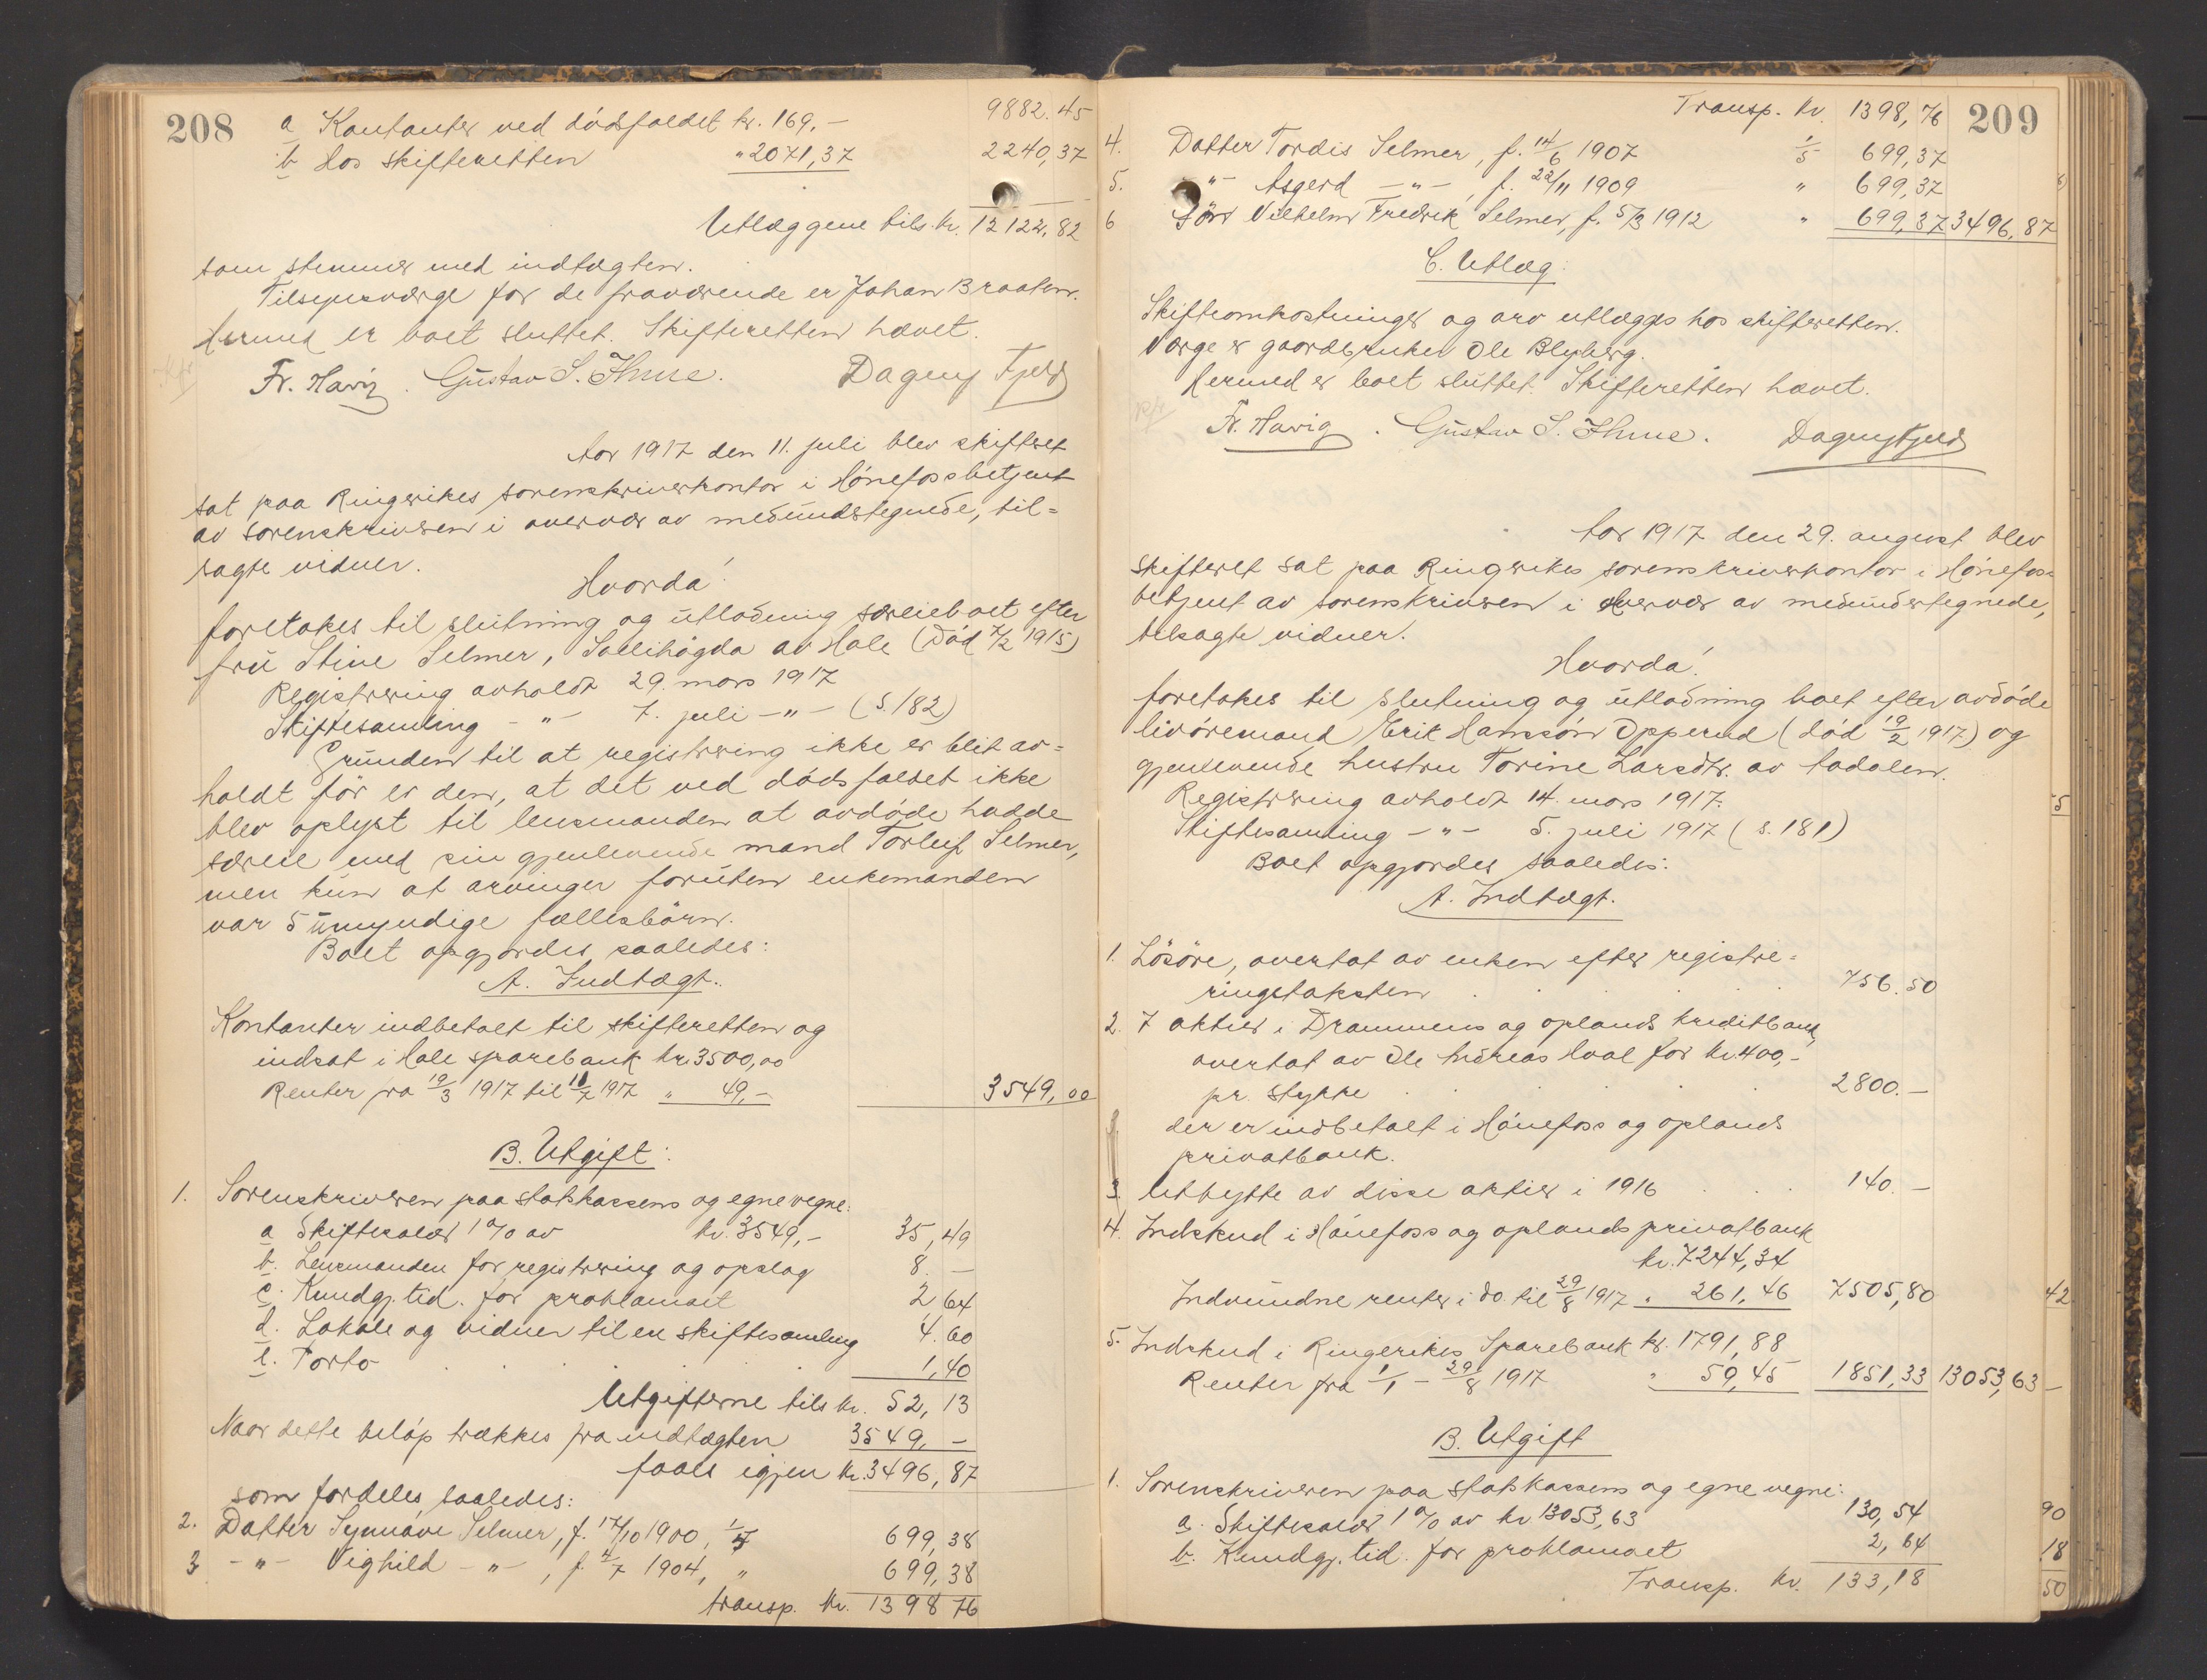 208
9882.45
a Kontanter ved dödsfaldet kr. 169.-
b Hos skifteretten " 2071,37 2240,37
Utlæggene tils. kr. 12 122.82
som stemmer med indtægten.
Tilsynsværge for de fraværende er Johan Braaten.
Hermed er boet sluttet. Skifteretten hævet.
Fr. Havig. Gustav S. Ihme. Dagny Fjeld
Aar 1917 den 11. juli blev skifteret
sat paa Ringerikes sorenskriverkontor i Hönefoss betjent
av sorenskriveren i overvær av medundertegnede, til=
sagte vidner.
Hvorda!
foretokes til slutning og utlodning særeieboet efter
fru Stine Selmer, Sollihögda av Hole (död 7/2 1915)
Registrering avholdt 29. mars 1917
Skiftesamling -"- 7. juli -"- (s. 182)
Grunden til at registrering ikke er blit av=
holdt för er den, at det ved dödsfaldet ikke
blev oplyst til lensmanden at avdöde hadde
særeie med sin gjenlevende mand Torleif Selmer,
men kun at arvinger foruten enkemanden
var 5 umyndige fællesbörn.
Boet opgjordes saaledes:
A. Indtægt.
Kontanter indbetalt til skifteretten og
indsat i Hole sparebank kr. 3500,00
Renter fra 19/3 1917 til 11/7 1917 " 49,- 3549,00
B. Utgift:
1. Sorenskriveren paa statskassens og egne vegne:
a Skiftesalær 1% av kr. 3549,- 35,49
b. Lensmanden for registrering og opslag 8.-
c. Kundgj. tid. for proklamaet 2 64
d. Lokale og vidner til en skiftesamling 4.60
e. Porto 1,40
Utgifterne tils kr. 52,13
Naar dette belöp trækkes fra indtægten 3549,-
faaes igjen kr. 3496,87
som fordeles saaledes:
2. Datter Synnöve Selmer, f. 17/10 1900, 1/5 699,38
3 -"- Vighild -"-, f. 4/7 1904, " 699,38
transp. kr. 1398 76
209
Transp. kr. 1398,76
4. Datter Tordis Selmer, f. 14/6 1907 1/5 699,37
5. -"- Asgerd -"-, f. 22/11 1909 " 699,37
6 Sön Vilhelm Fredrik Selmer, f. 5/3 1912 " 699,37 3496,87
C. Utlæg:
Skifteomkostninger og arv utlægges hos skifteretten.
Værge er gaardbruker Ole Blyberg.
Hermed er boet sluttet. Skifteretten hævet.
Fr. Havig. Gustav S. Ihme. Dagny Fjeld
Aar 1917 den 29. august blev
skifteret sat paa Ringerikes sorenskriverkontor i Hönefoss
betjent av sorenskriveren i overvær av medundertegnede,
tilsagte vidner.
Hvorda!
foretokes til slutning og utlodning boet efter avdöde
livöremand Erik Hanssön Opperud (död 19/2 1917) og
gjenlevende hustru Torine Larsdtr. av Aadalen.
Registrering avholdt 14. mars 1917.
Skiftesamling -"- 5. juli 1917 (s. 181)
Boet opgjordes saaledes:
A. Indtægt.
1. Lösöre, overtat av enken efter registre=
ringstaksten 756.50
2. 7 aktier i Drammens og oplands kreditbank,
overtat av Ole Andreas Hval for kr. 400,-
pr. stykke 2800.-
der er indbetalt i Hönefoss og oplands
privatbank.
3 Utbytte av disse aktier i 1916 140.-
4. Indskud i Hönefoss og oplands privatbank
kr. 7244,34
Indvundne renter i do. til 29/8 1917 " 261,46 7505,80
5. Indskud i Ringerikes Sparebank kr. 1791,88
Renter fra 1/1 - 29/8 1917 " 59,45 1851,33 13053,63
B. Utgift
1. Sorenskriveren paa statskassens og egne vegne:
a. Skiftesalær 1% av kr 13053,63 130,54
b. Kundgj. tid. for proklamaet 2,64
Transp. kr. 133,18
5
42
90
18
50